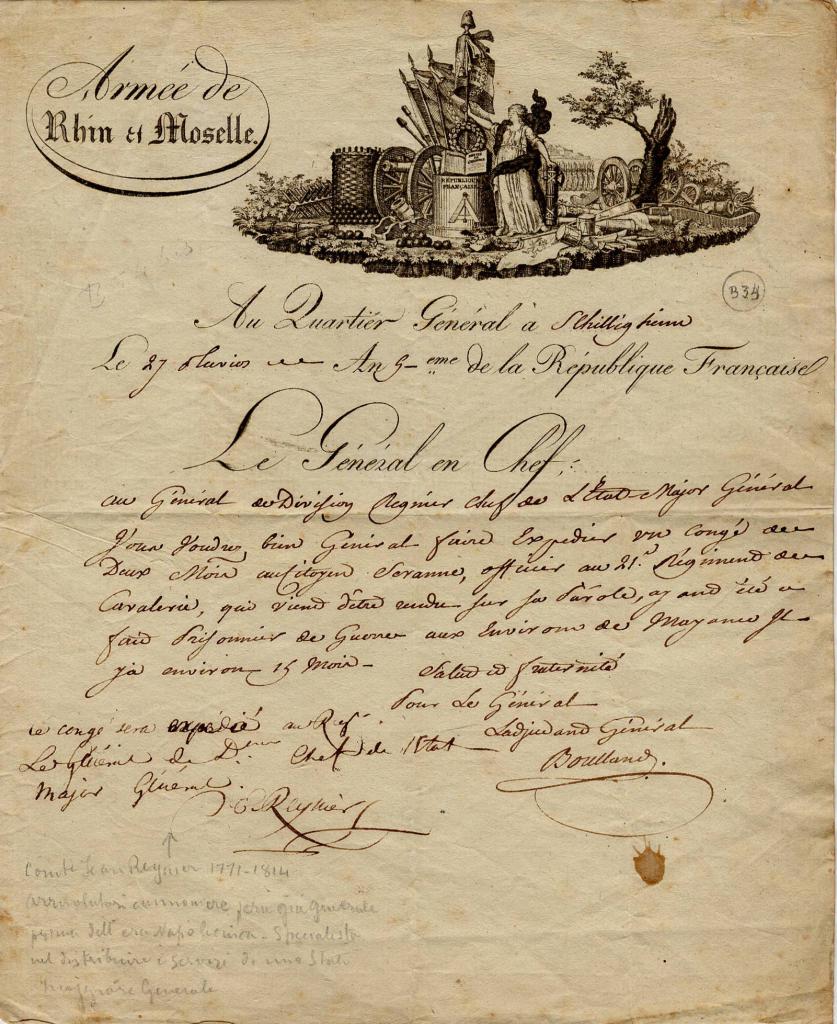 Armée de
Rhin et Moselle.
RÉPUBLIQUE
FRANÇAISE
B34
Au Quartiér Général à Schilligheim
Le 27 pluvios An 5 eme de la République Française
Le Général en Chef,
au Général de Division Regnier chef de L'État-Major Général
Vous Voudrez bien Général faire Expedier un congé de
Deux Mois au Citoyen Seranne, officier au 21.e Régiment de
Cavalerie, qui viend d'être rendu sur sa Parole, ayand été
fait Prisonnier de Guerre aux Environs de Mayance Il
ya environ 15 Mois
Salud et fraternité
Pour Le Général
Ladjudand Général
Boulland.
Le congé sera expédié au
Le Général de Don Chef de l'Etat
Major Général.
Reynier
Comte Jean Reynier 1771-1814
generale
prima dell'era Napoleonica - Specialista
nel distribuire i Servizi di uno Stato
Maggiore Generale